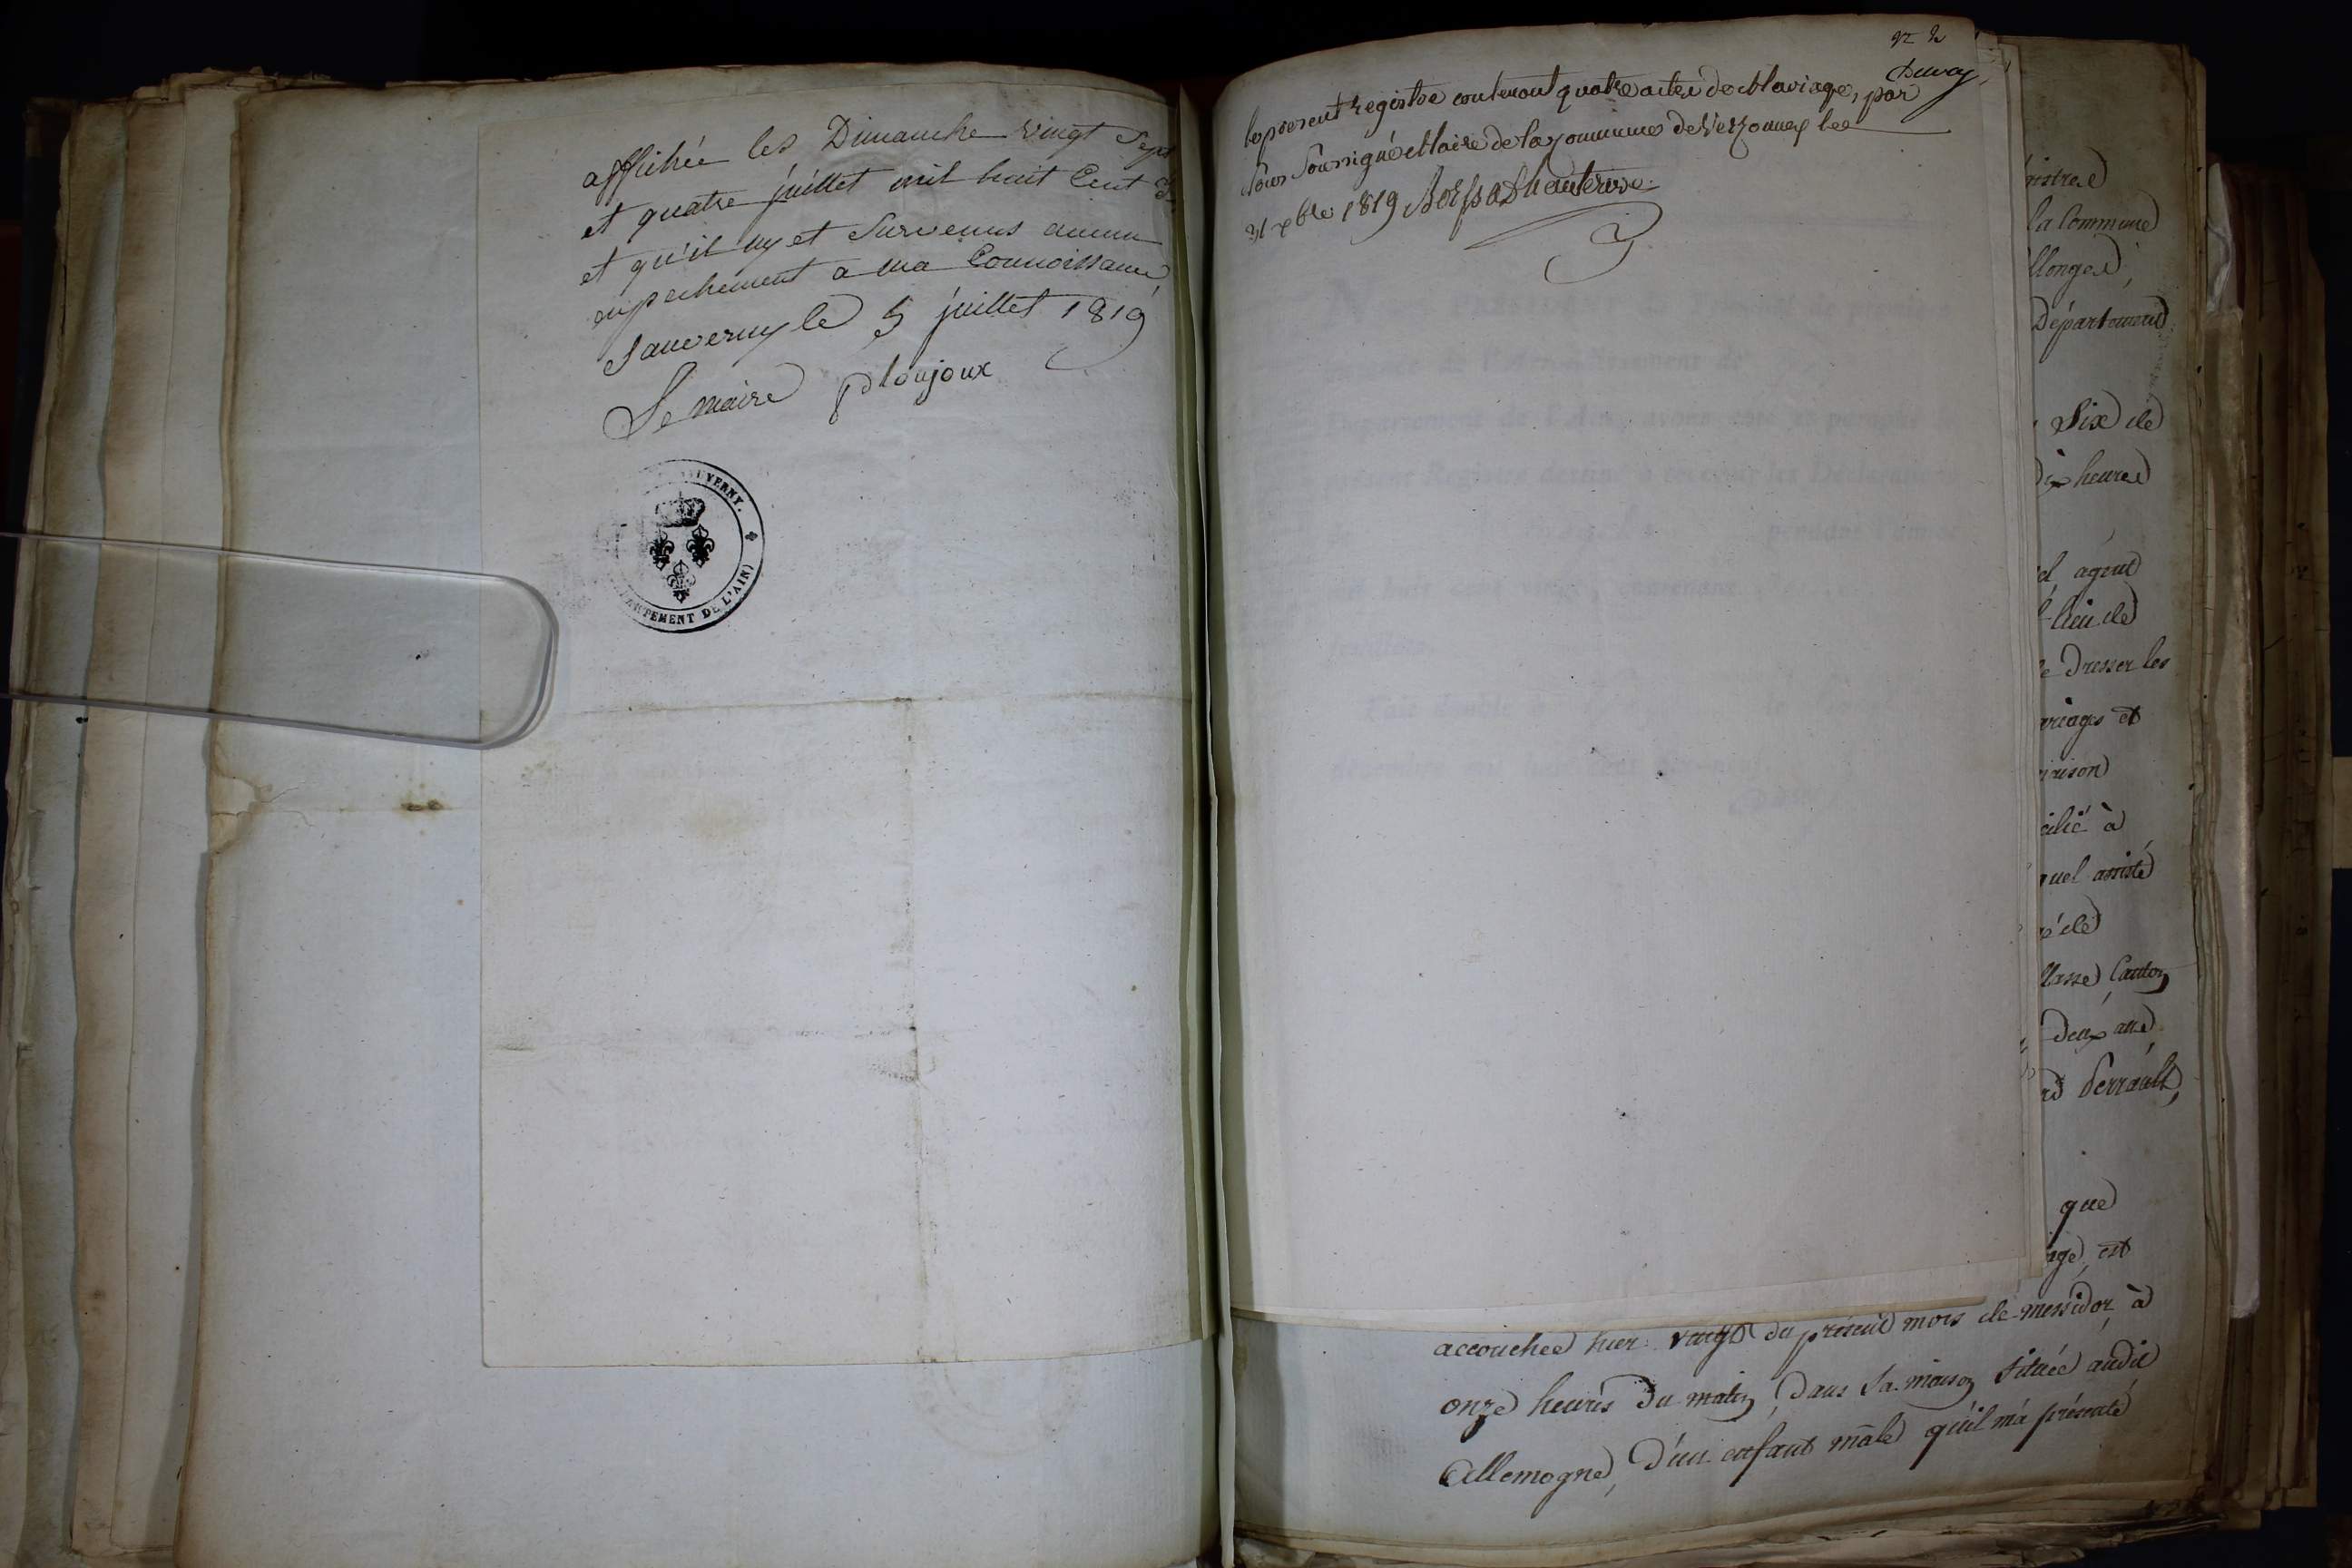 affichée les Dimanche vingt Sept
et quatre juillet mil huit Cent
et qu'il ny et Survenus aucun
empechement a ma Connoissance
Sauverny le 5 juillet 1819
Le maire
UVERNY.
DE L'AIN)
le present registre contenant quatre actes de Mariage, par
Nous Soussigné Maire de la Commune de Versonnex le
31 xbre 1819
gistre
la Commune
llonges,
Département
Six de
Dix heures
agent
lieu de
Dresser les
ariages et
cilié à
quel assisté
Canton
Deux ans
Perrault,
que
est
accouchée hier vingt du présent mois de messidor, à
onze heures du matin, Dans sa maison située audit
Allemogne, D'un enfant mâle qu'il m'a présenté